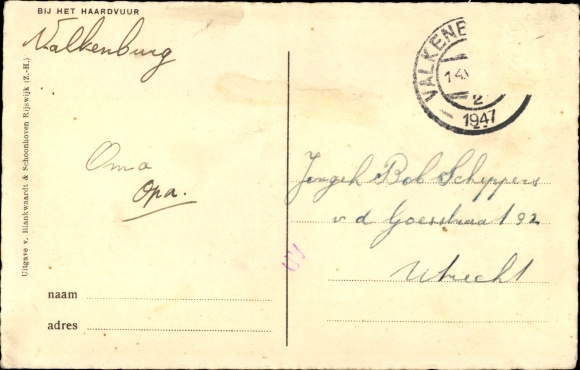 BIJ HET HAARDVUUR
Valkenburg
Oma
Opa.
naam
adres
Uitgave v. Blankwaardt & Schoonhoven Rijswijk (Z.-H.)
VALKENB
14
2
1947
Jongeh Bob Scheppers
v d Goesstraat 192
Utrecht